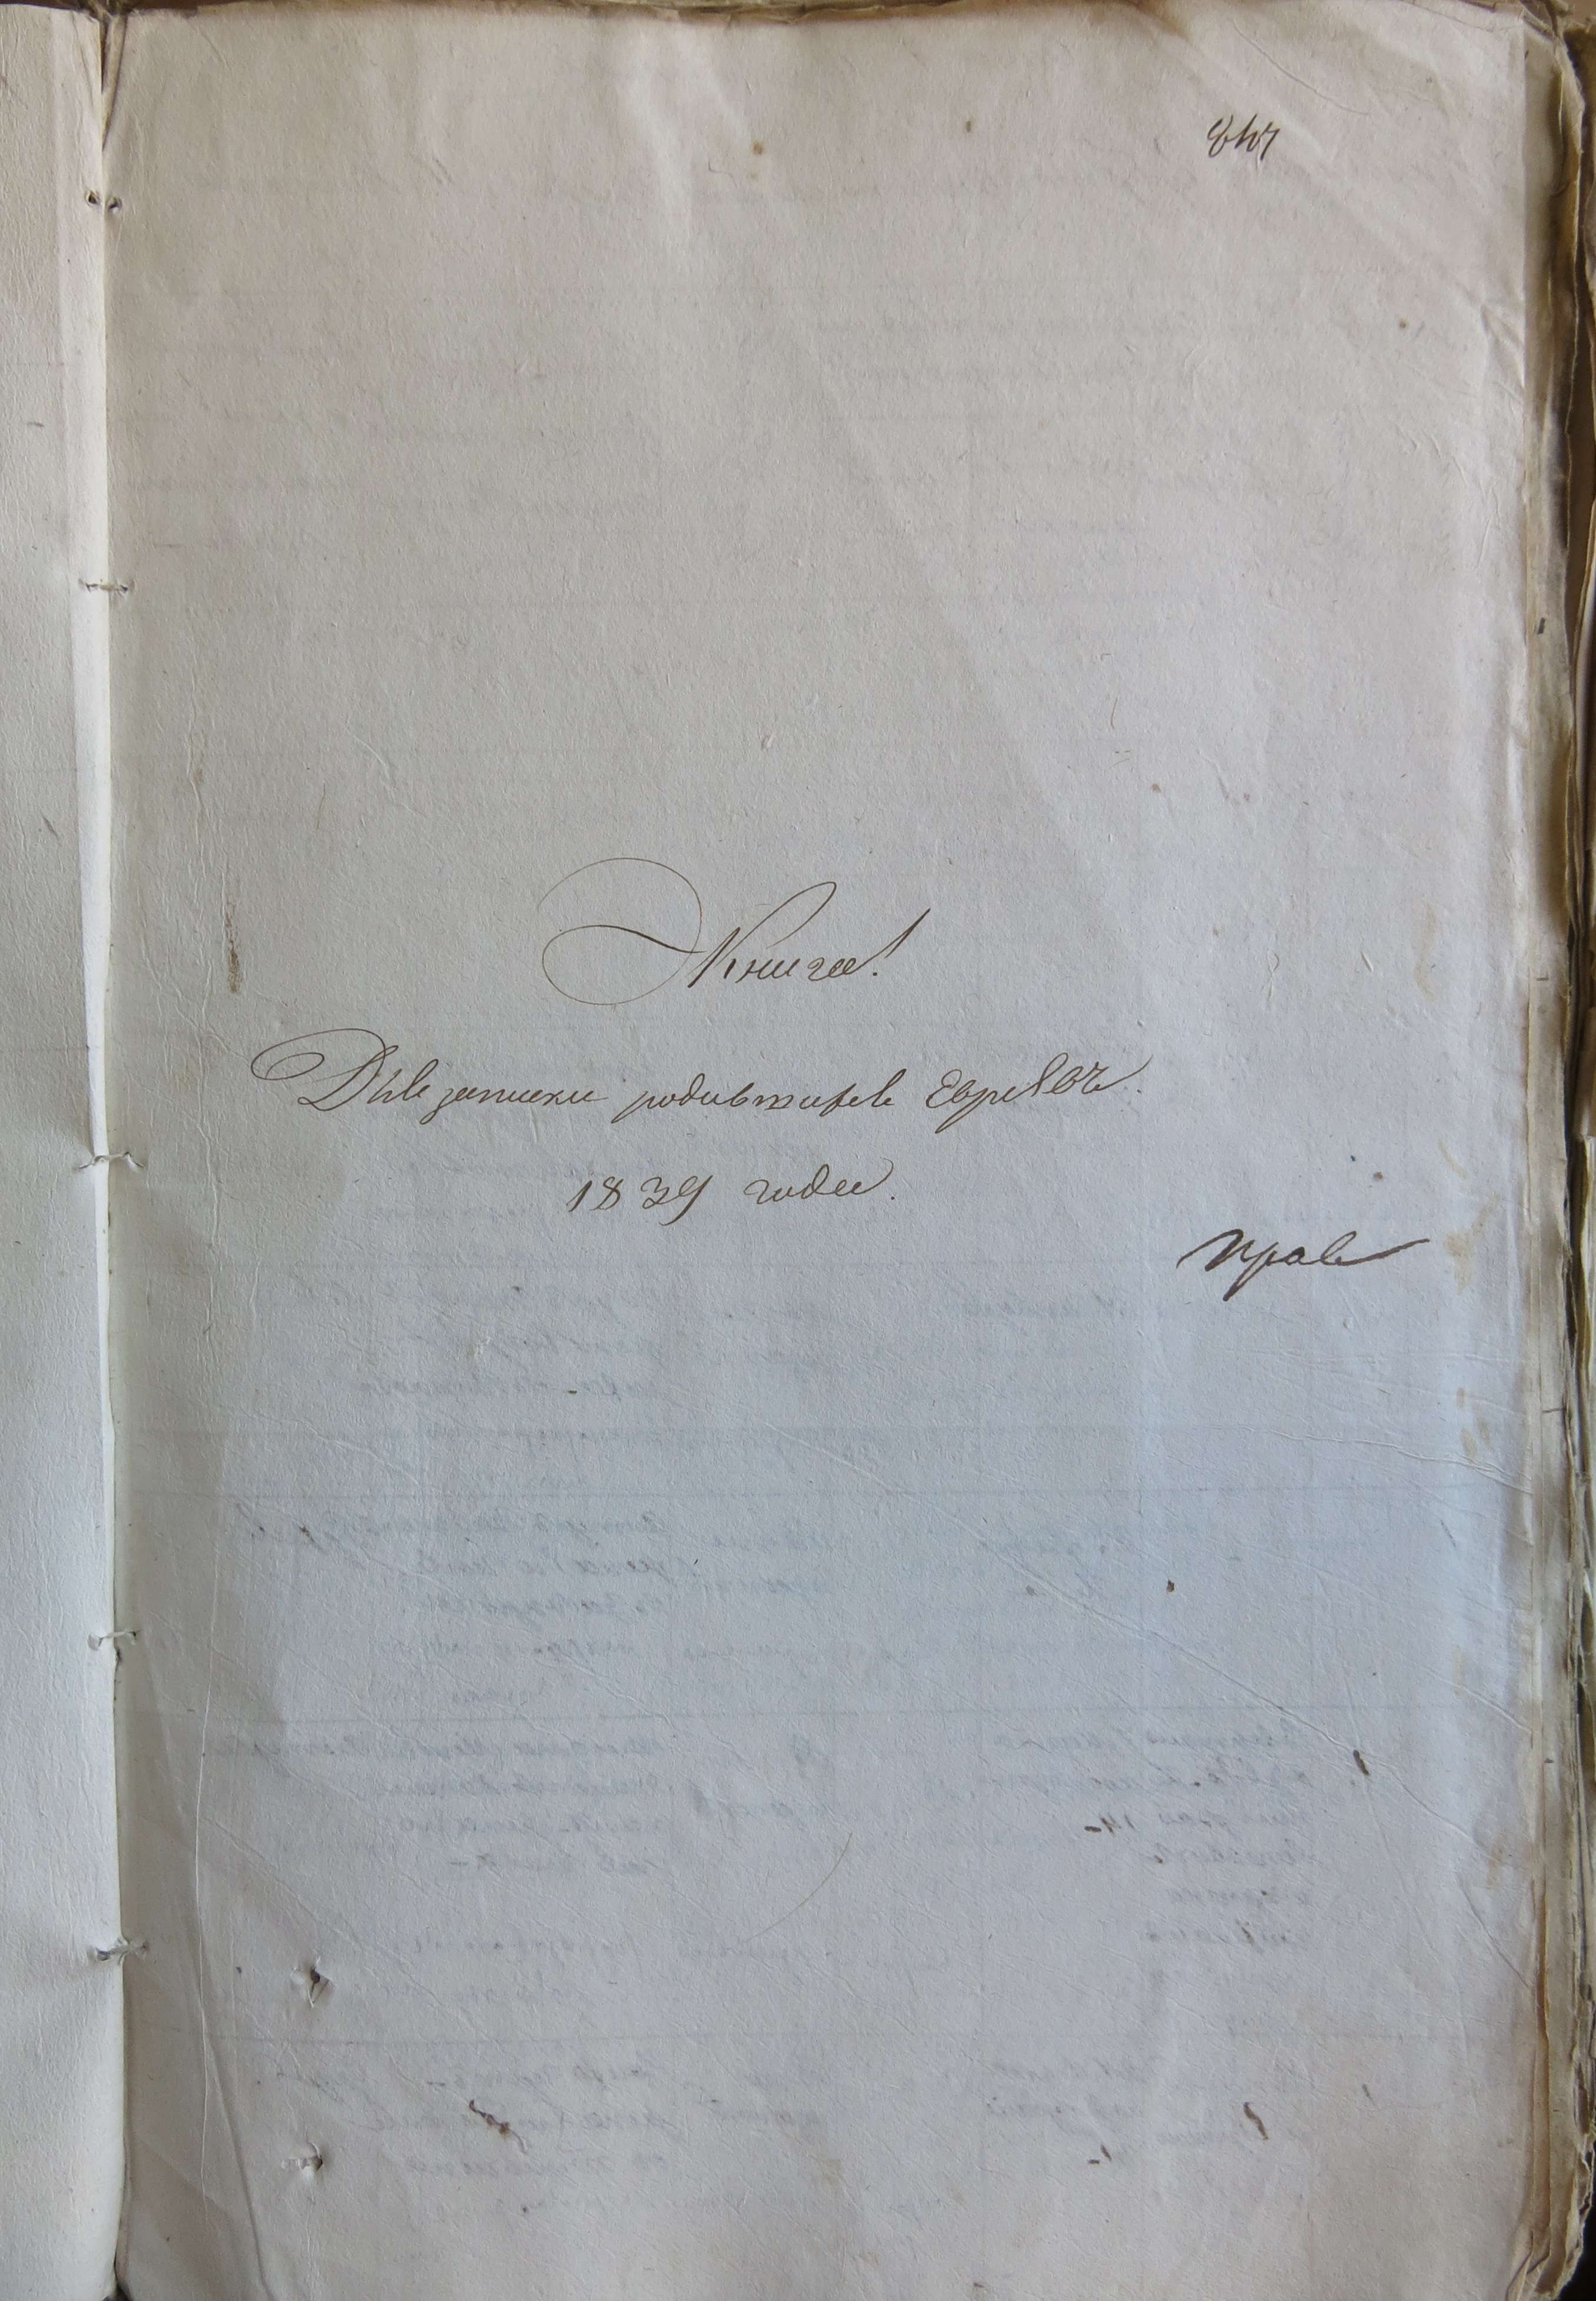 Книга!
Для записки родившихся Евреевъ.
1839 года.